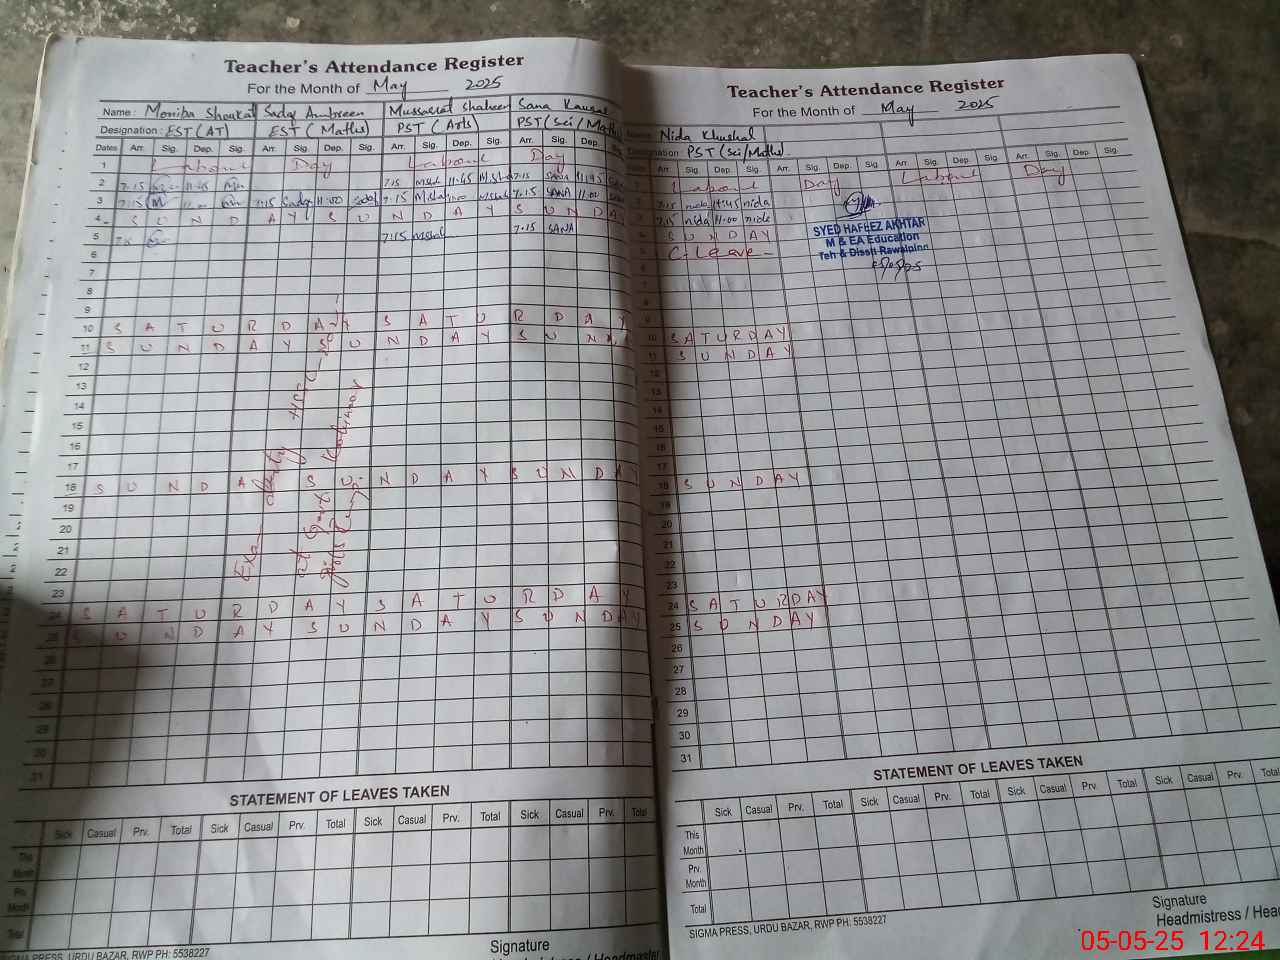 Teacher's Attendance Register
For the Month of May 2025
Name : Moniba Shoukat Sadaf Ambreen Mussarat Shaheen Sana Kausar
Designation : EST (AT) EST (Maths) PST (Arts) PST (Sci/Maths)
Dates Arr. Sig. Dep. Sig. Arr. Sig. Dep. Sig. Arr. Sig. Dep. Sig. Arr. Sig. Dep. Sig.
1 Labour Day Labour Day
2 7.15 11.45 7.15 11.45 7.15 SANA 11.45
3 7.15 11.00 7.15 Sadaf 11.00 Sadaf 7.15 11.00 7.15 SANA 11.00
4 SUNDAY SUNDAY SUNDAY
5 7.15 7.15 7.15 SANA
6
7
8
9
10 SATURDAY SATURDAY
11 SUNDAY SUNDAY SUN
12
13
14
15
16
17
18 SUNDAY SUNDAY SUNDAY
19
20
21
22
23
24 SATURDAY SATURDAY
25 SUNDAY SUNDAY SUNDAY
26
27
28
29
30
31
Duty
at Govt
Girls
STATEMENT OF LEAVES TAKEN
Sick Casual Prv. Total Sick Casual Prv. Total Sick Casual Prv. Total Sick Casual Prv. Total
This Month
Prv. Month
Total
SIGMA PRESS, URDU BAZAR, RWP PH: 5538227
Signature
Headmistress / Headmaster
Teacher's Attendance Register
For the Month of May 2025
Name : Nida Khushal
Designation : PST (Sci/Maths).
Arr. Sig. Dep. Sig. Arr. Sig. Dep. Sig. Arr. Sig. Dep. Sig. Arr. Sig. Dep. Sig.
1 Labour Day Labour Day
7.15 nida 11.45 nida
7.15 nida 11.00 nida
SUNDAY
C. Leave
SYED HAFEEZ AKHTAR
M & EA Education
Teh & Disstt Rawalpinn
05/05/25
7
8
9
10 SATURDAY
11 SUNDAY
12
13
14
15
16
17
18 SUNDAY
19
20
21
22
23
24 SATURDAY
25 SUNDAY
26
27
28
29
30
31
STATEMENT OF LEAVES TAKEN
Sick Casual Prv. Total Sick Casual Prv. Total Sick Casual Prv. Total Sick Casual Prv. Total
This Month
Prv. Month
Total
SIGMA PRESS, URDU BAZAR, RWP PH: 5538227
Signature
Headmistress / Head
05-05-25 12:24